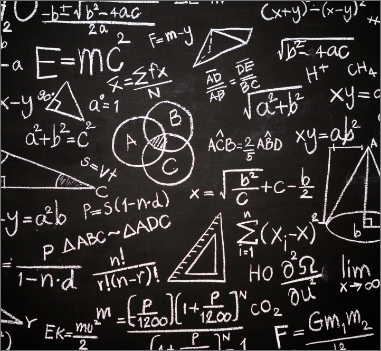 -b±√b²-4ac
2a
(x+y)÷(x-y)²
-a
E=mc²
F=m-y
√b²-4ac
x̄=Σfx
N
AD/AB=DE/BC
H⁺
CH₄
x-y
90°
a°=1
√a²+b²
xy=a
a²+b²=c²
A
B
C
AĈB=2/5AB̂D
xy=ab²
A
S=v+
C
x=√b²/c+c-b/2
-y=a²b
P=S(1-n·d)
ΔABC~ΔADC
n
Σ(Xᵢ-X)²
i=1
b
=P
1-n·d
n!
r!(n-r)!
HO
∂²Ω
∂u²
lim
x→∞
r
EK=mv²
2
m=[P/1200)(1+P/1200]ᴺ
CO₂
F=Gm₁m₂